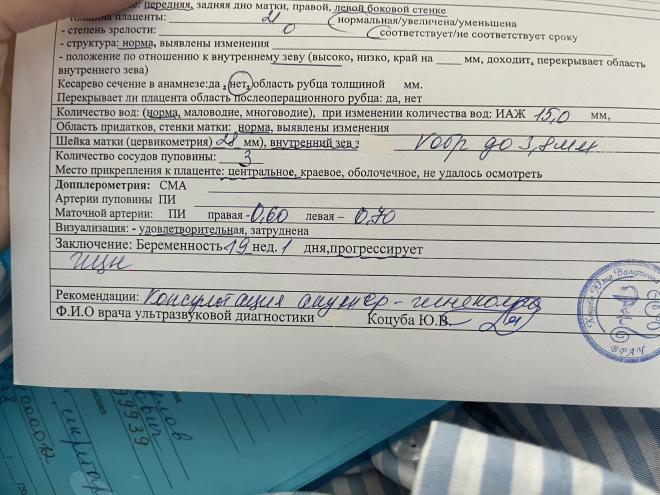 передняя, задняя дно матки, правой, левой боковой стенке
толщина плаценты: 21 (нормальная/увеличена/уменьшена
- степень зрелости: 0 (соответствует/не соответствует сроку
- структура: норма, выявлены изменения
- положение по отношению к внутреннему зеву (высоко, низко, край на ____ мм, доходит, перекрывает область
внутреннего зева)
Кесарево сечение в анамнезе:да , нет, область рубца толщиной мм.
Перекрывает ли плацента область послеоперационного рубца: да, нет
Количество вод: (норма, маловодие, многоводие), при изменении количества вод: ИАЖ 15,0 мм,
Область придатков, стенки матки: норма, выявлены изменения
Шейка матки (цервикометрия) 28 мм), внутренний зев з V обр до 3,8мм
Количество сосудов пуповины: 3
Место прикрепления к плаценте: центральное, краевое, оболочечное, не удалось осмотреть
Допплерометрия: СМА
Артерии пуповины ПИ
Маточной артерии: ПИ правая -0,60 левая – 0,70
Визуализация: - удовлетворительная, затруднена
Заключение: Беременность 19 нед. 1 дня,прогрессирует
ИЦН
Рекомендации: Консультация акушер-гинеколога
Ф.И.О врача ультразвуковой диагностики Коцуба Ю.В.
Коцуба Юлия Валерьевна
ВРАЧ